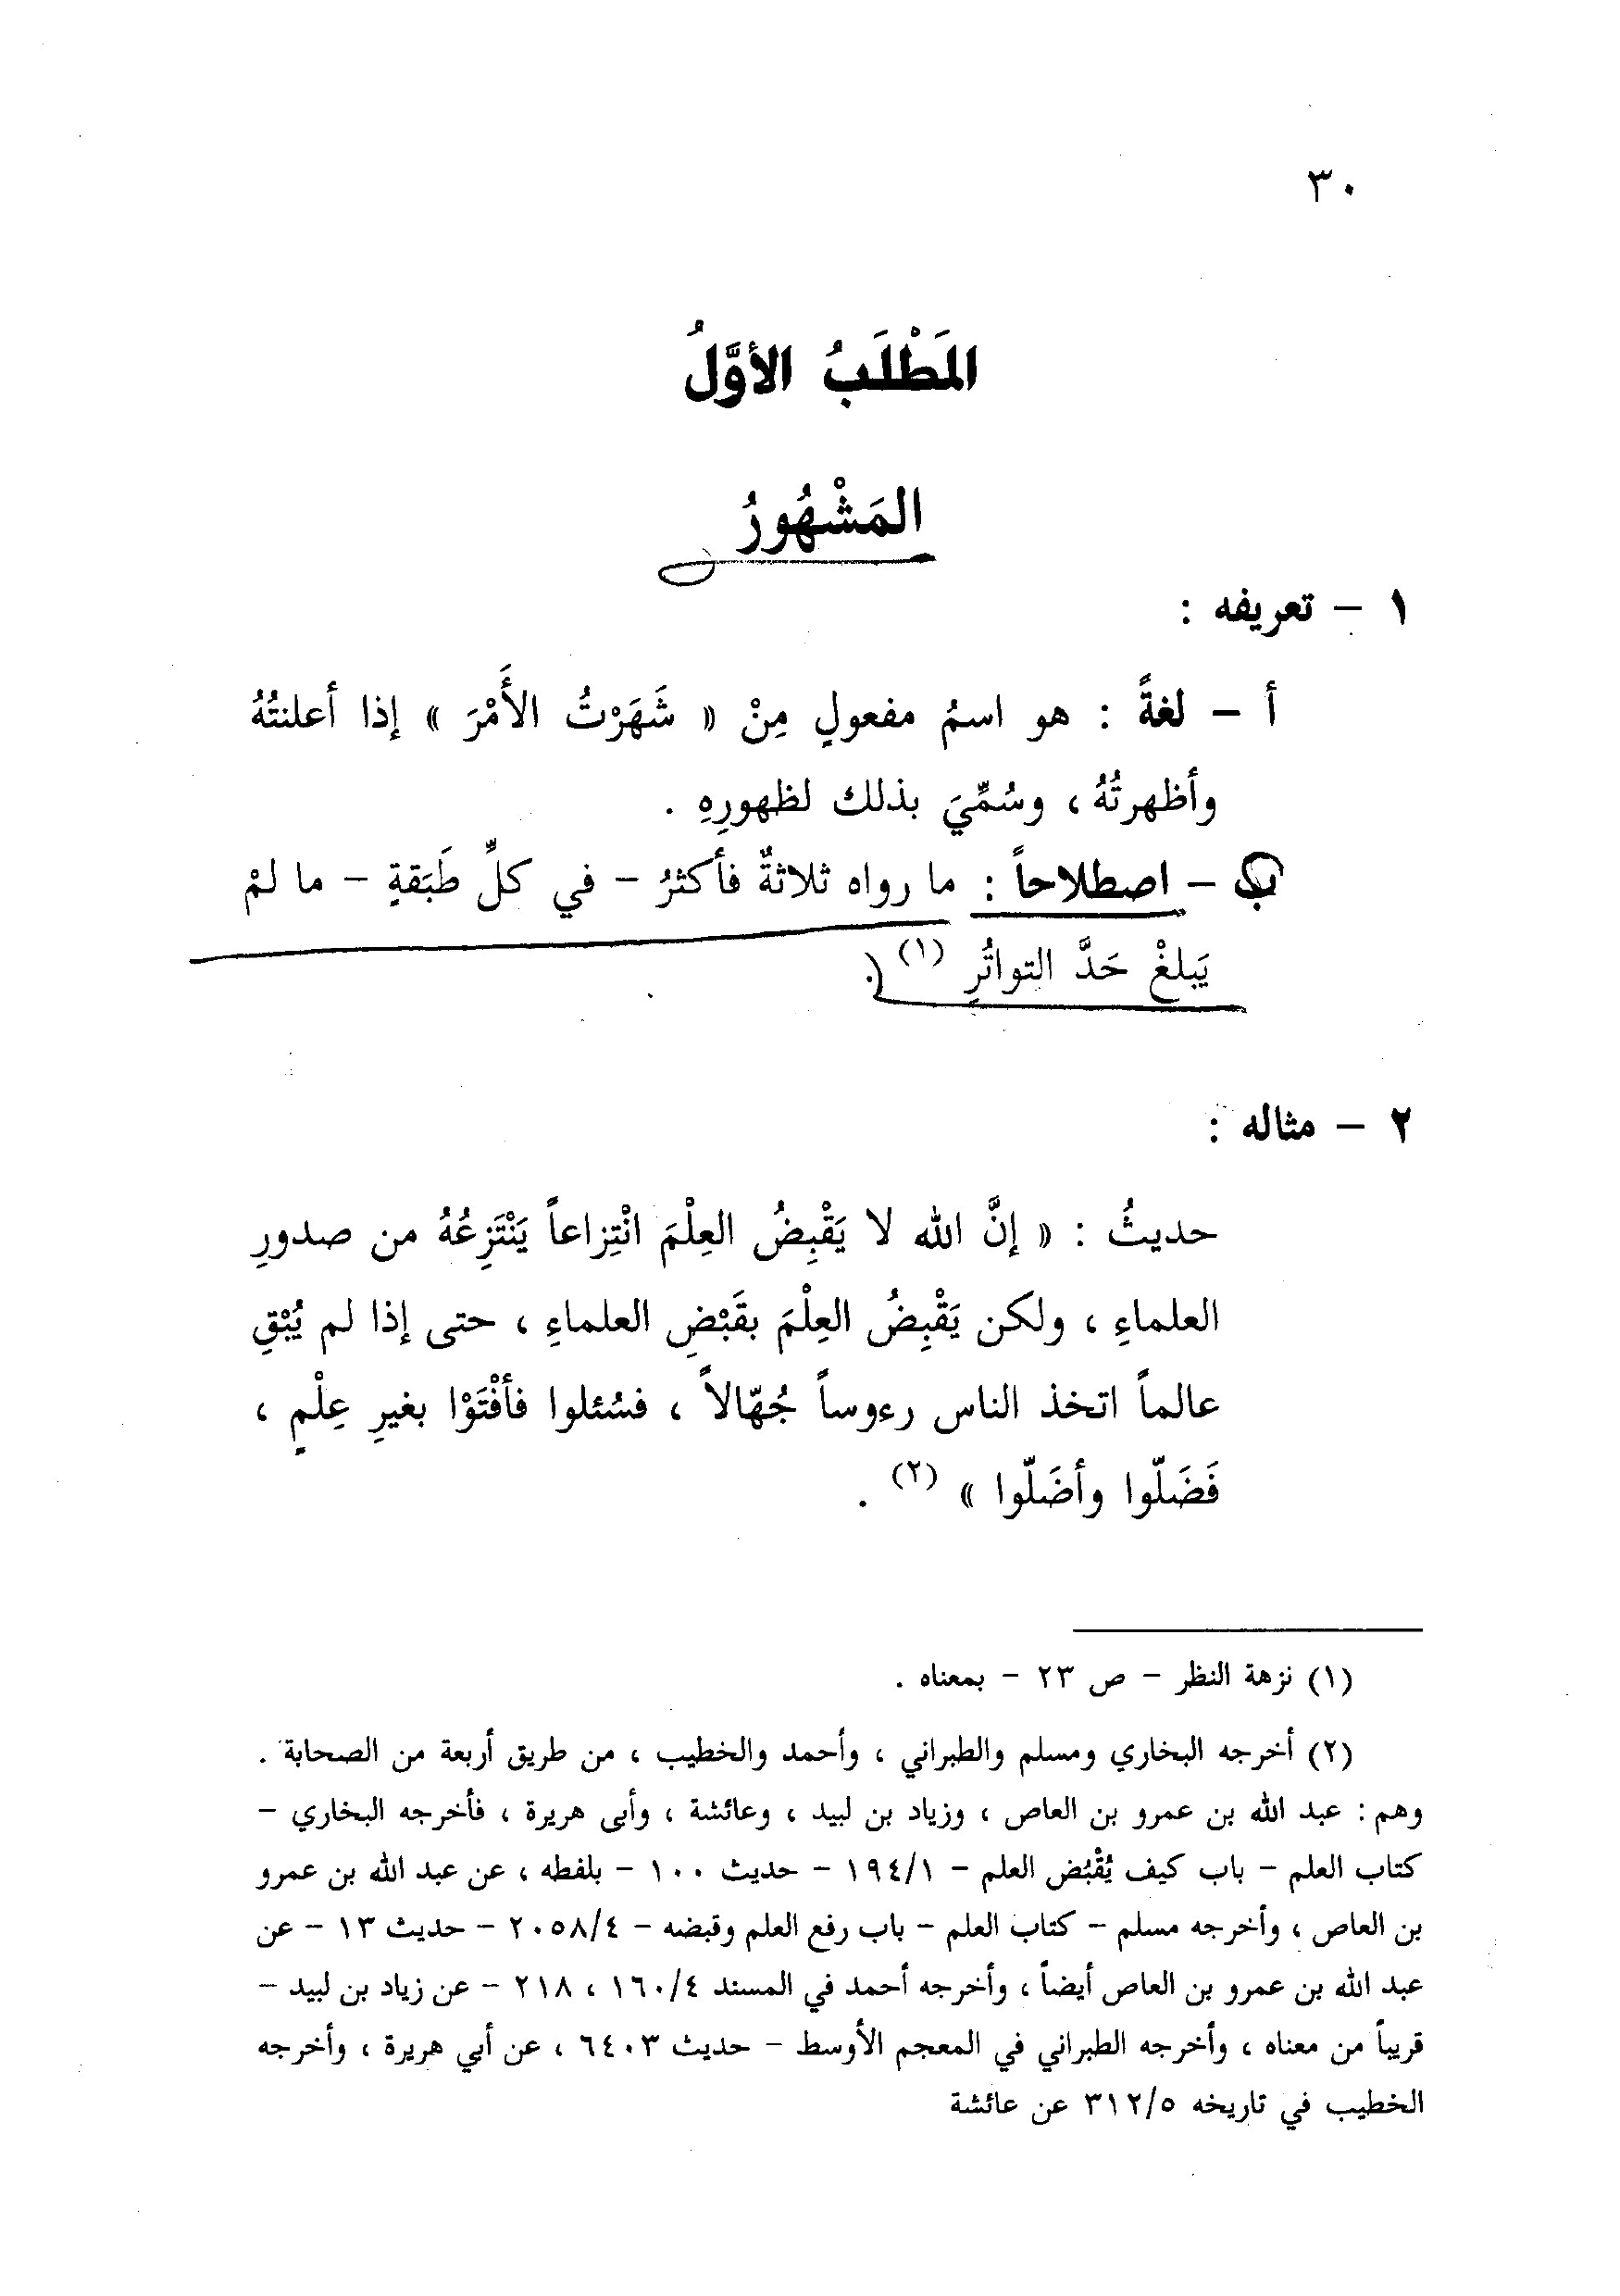 ٣٠
المَطْلَبُ الأوَّلُ
المَشْهُورُ
١ – تعريفه :
أ – لغةً : هو اسمُ مفعولٍ مِنْ « شَهَرْتُ الأَمْرَ » إذا أعلنتُهُ
وأظهرتُهُ ، وسُمِّيَ بذلك لظهورِهِ .
ب – اصطلاحاً : ما رواه ثلاثةٌ فأكثرُ – في كلِّ طَبَقةٍ – ما لمْ
يَبلغْ حَدَّ التواتُرِ (١) .
٢ – مثاله :
حديثُ : « إنَّ الله لا يَقْبِضُ العِلْمَ انْتِزاعاً يَنْتَزِعُهُ من صدورِ
العلماءِ ، ولكن يَقْبِضُ العِلْمَ بقَبْضِ العلماءِ ، حتى إذا لم يُبْقِ
عالماً اتخذ الناس رءوساً جُهّالاً ، فسُئلوا فأفْتَوْا بغيرِ عِلْمٍ ،
فَضَلّوا وأضَلّوا » (٢) .
(١) نزهة النظر – ص ٢٣ – بمعناه .
(٢) أخرجه البخاري ومسلم والطبراني ، وأحمد والخطيب ، من طريق أربعة من الصحابة .
وهم : عبد الله بن عمرو بن العاص ، وزياد بن لبيد ، وعائشة ، وأبى هريرة ، فأخرجه البخاري –
كتاب العلم – باب كيف يُقْبُض العلم – ١٩٤/١ – حديث ١٠٠ – بلفطه ، عن عبد الله بن عمرو
بن العاص ، وأخرجه مسلم – كتاب العلم – باب رفع العلم وقبضه – ٢٠٥٨/٤ – حديث ١٣ – عن
عبد الله بن عمرو بن العاص أيضاً ، وأخرجه أحمد في المسند ١٦٠/٤ ، ٢١٨ – عن زياد بن لبيد –
قريباً من معناه ، وأخرجه الطبراني في المعجم الأوسط – حديث ٦٤٠٣ ، عن أبي هريرة ، وأخرجه
الخطيب في تاريخه ٣١٢/٥ عن عائشة